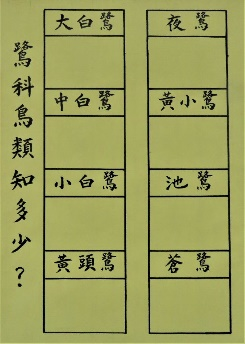 鷺科鳥類知多少？
大白鷺
中白鷺
小白鷺
黃頭鷺
夜鷺
黃小鷺
池鷺
蒼鷺